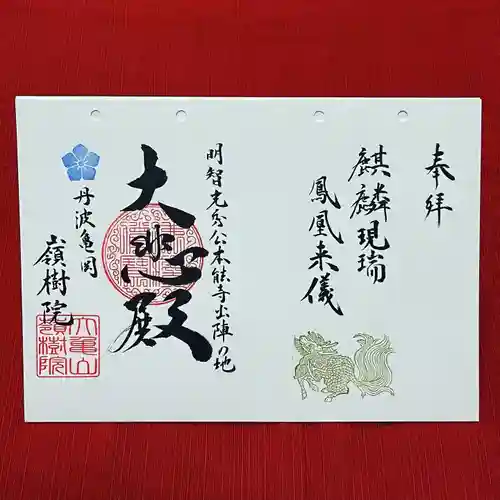 奉拝
麒麟現瑞
鳳凰来儀
明智光秀公本能寺出陣の地
大悲殿
丹波亀岡
嶺樹院
大亀山
嶺樹院